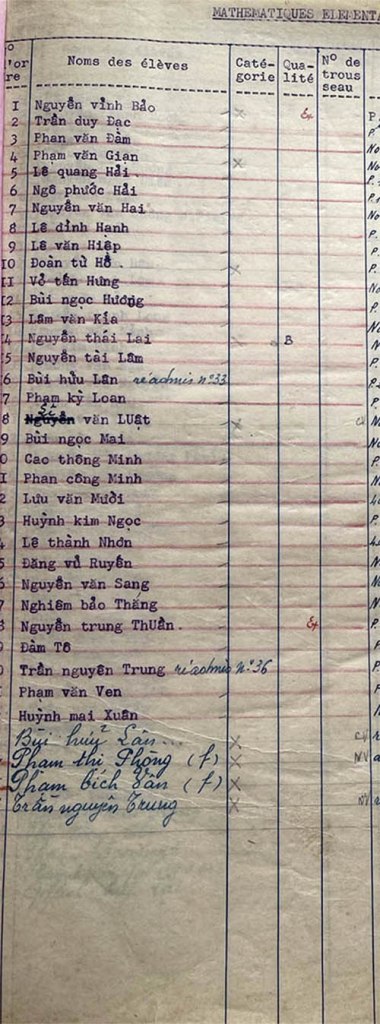 MATHEMATIQUES ELEMENTA
Noms des élèves
Caté-
gorie
Qua-
lité
N° de
trous
seau
I Nguyễn vĩnh Bảo x Ex P.
2 Trần duy Đạc P
3 Phan văn Đàm No
4 Phạm văn Gian x No
5 Lê quang Hải. P.
6 Ngô phước Hải
7 Nguyễn văn Hai No
8 Lê đình Hạnh P.
9 Lê văn Hiệp P.
IO Đoàn tử Hồ. x P.
II Võ tấn Hưng No
I2 Bùi ngọc Hương P.
I3 Lâm văn Kía
4 Nguyễn thái Lai x B
5 Nguyễn tài Lâm P
6 Bùi hữu Lân réadmis n° 33
7 Phạm kỳ Loan P
8 Nguyễn Sĩ văn LUật x
9 Bùi ngọc Mai
0 Cao thông Minh P
I Phan công Minh
2 Lưu văn Mười
3 Huỳnh kim Ngọc P.
4 Lê thành Nhơn
5 Đăng vũ Ruyến
6 Nguyễn văn Sang
7 Nghiêm bảo Thăng
8 Nguyễn trung ThUần. Ex
Đàm Tô
0 Trần nguyên Trung réadmis n° 36
I Phạm văn Ven
Huỳnh mai Xuân
Bùi huỹ Lân... x
Phạm thị Phọng (f) x NV
Phạm bích Vân (f) x
Trần nguyên Trung x NV